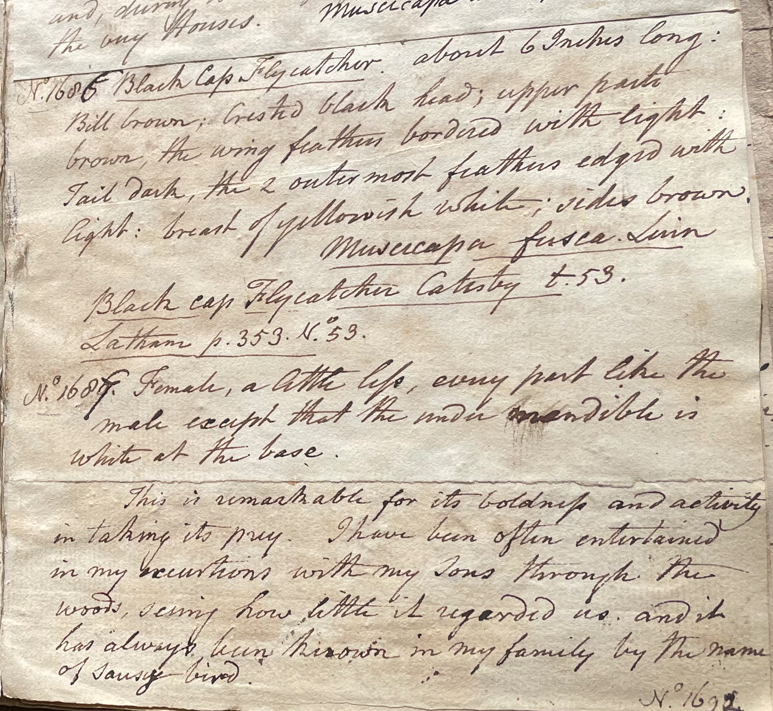 and, during
the very Houses. Muscicapa
No. 1686 Black Cap Flycatcher. about 6 Inches long:
Bill brown; Crested black head; upper parts
brown, the wing feathers bordered with light:
Tail dark, the 2 outermost feathers edged with
light: breast of yellowish white; sides brown.
Muscicapa fusca. Linn
Black cap Flycatcher Catesby t. 53.
Latham p. 353. No. 53.
No. 1687. Female, a little less, every part like the
male except that the under mandible is
white at the base.
This is remarkable for its boldness and activity
in taking its prey. I have been often entertained
in my excurtions with my Sons through the
woods, seeing how little it regarded us. and it
has always been known in my family by the name
of bird.
No. 1692